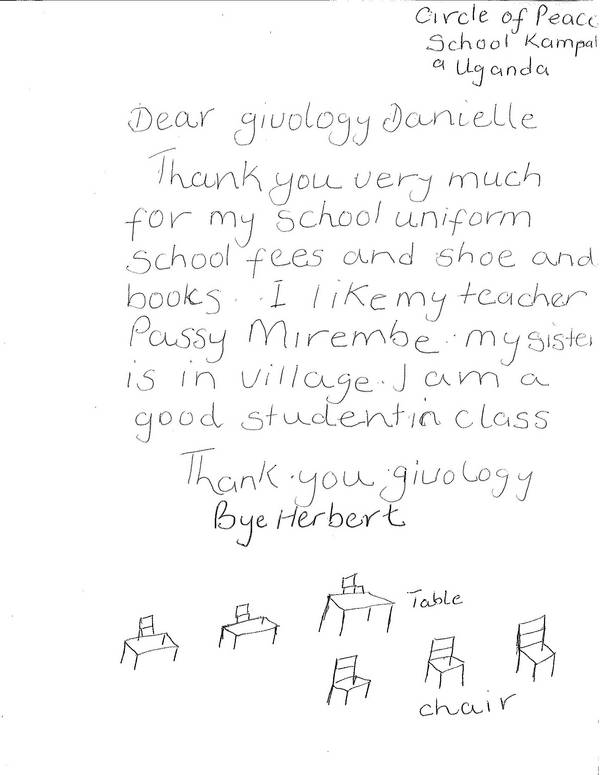 Circle of Peace
School Kampal
a Uganda
Dear givology Danielle
Thank you very much
for my school uniform
school fees and shoe and
books. I like my teacher
Passy Mirembe. my sister
is in village. I am a
good student in class
Thank you givology
Bye Herbert
Table
chair